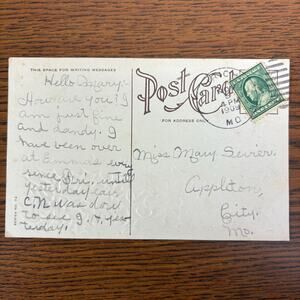 THIS SPACE FOR WRITING MESSAGES
Post Card
FOR ADDRESS ONLY
4 PM
1909
MO
Hello Mary:-
How are you? I
am just fine
and dandy. I
have been over
at Emma's ever
since Fri. until
yesterday eve.
C.N. was down
to see yes
terday.
Miss Mary Sevier.
Appleton
City.
Mo.